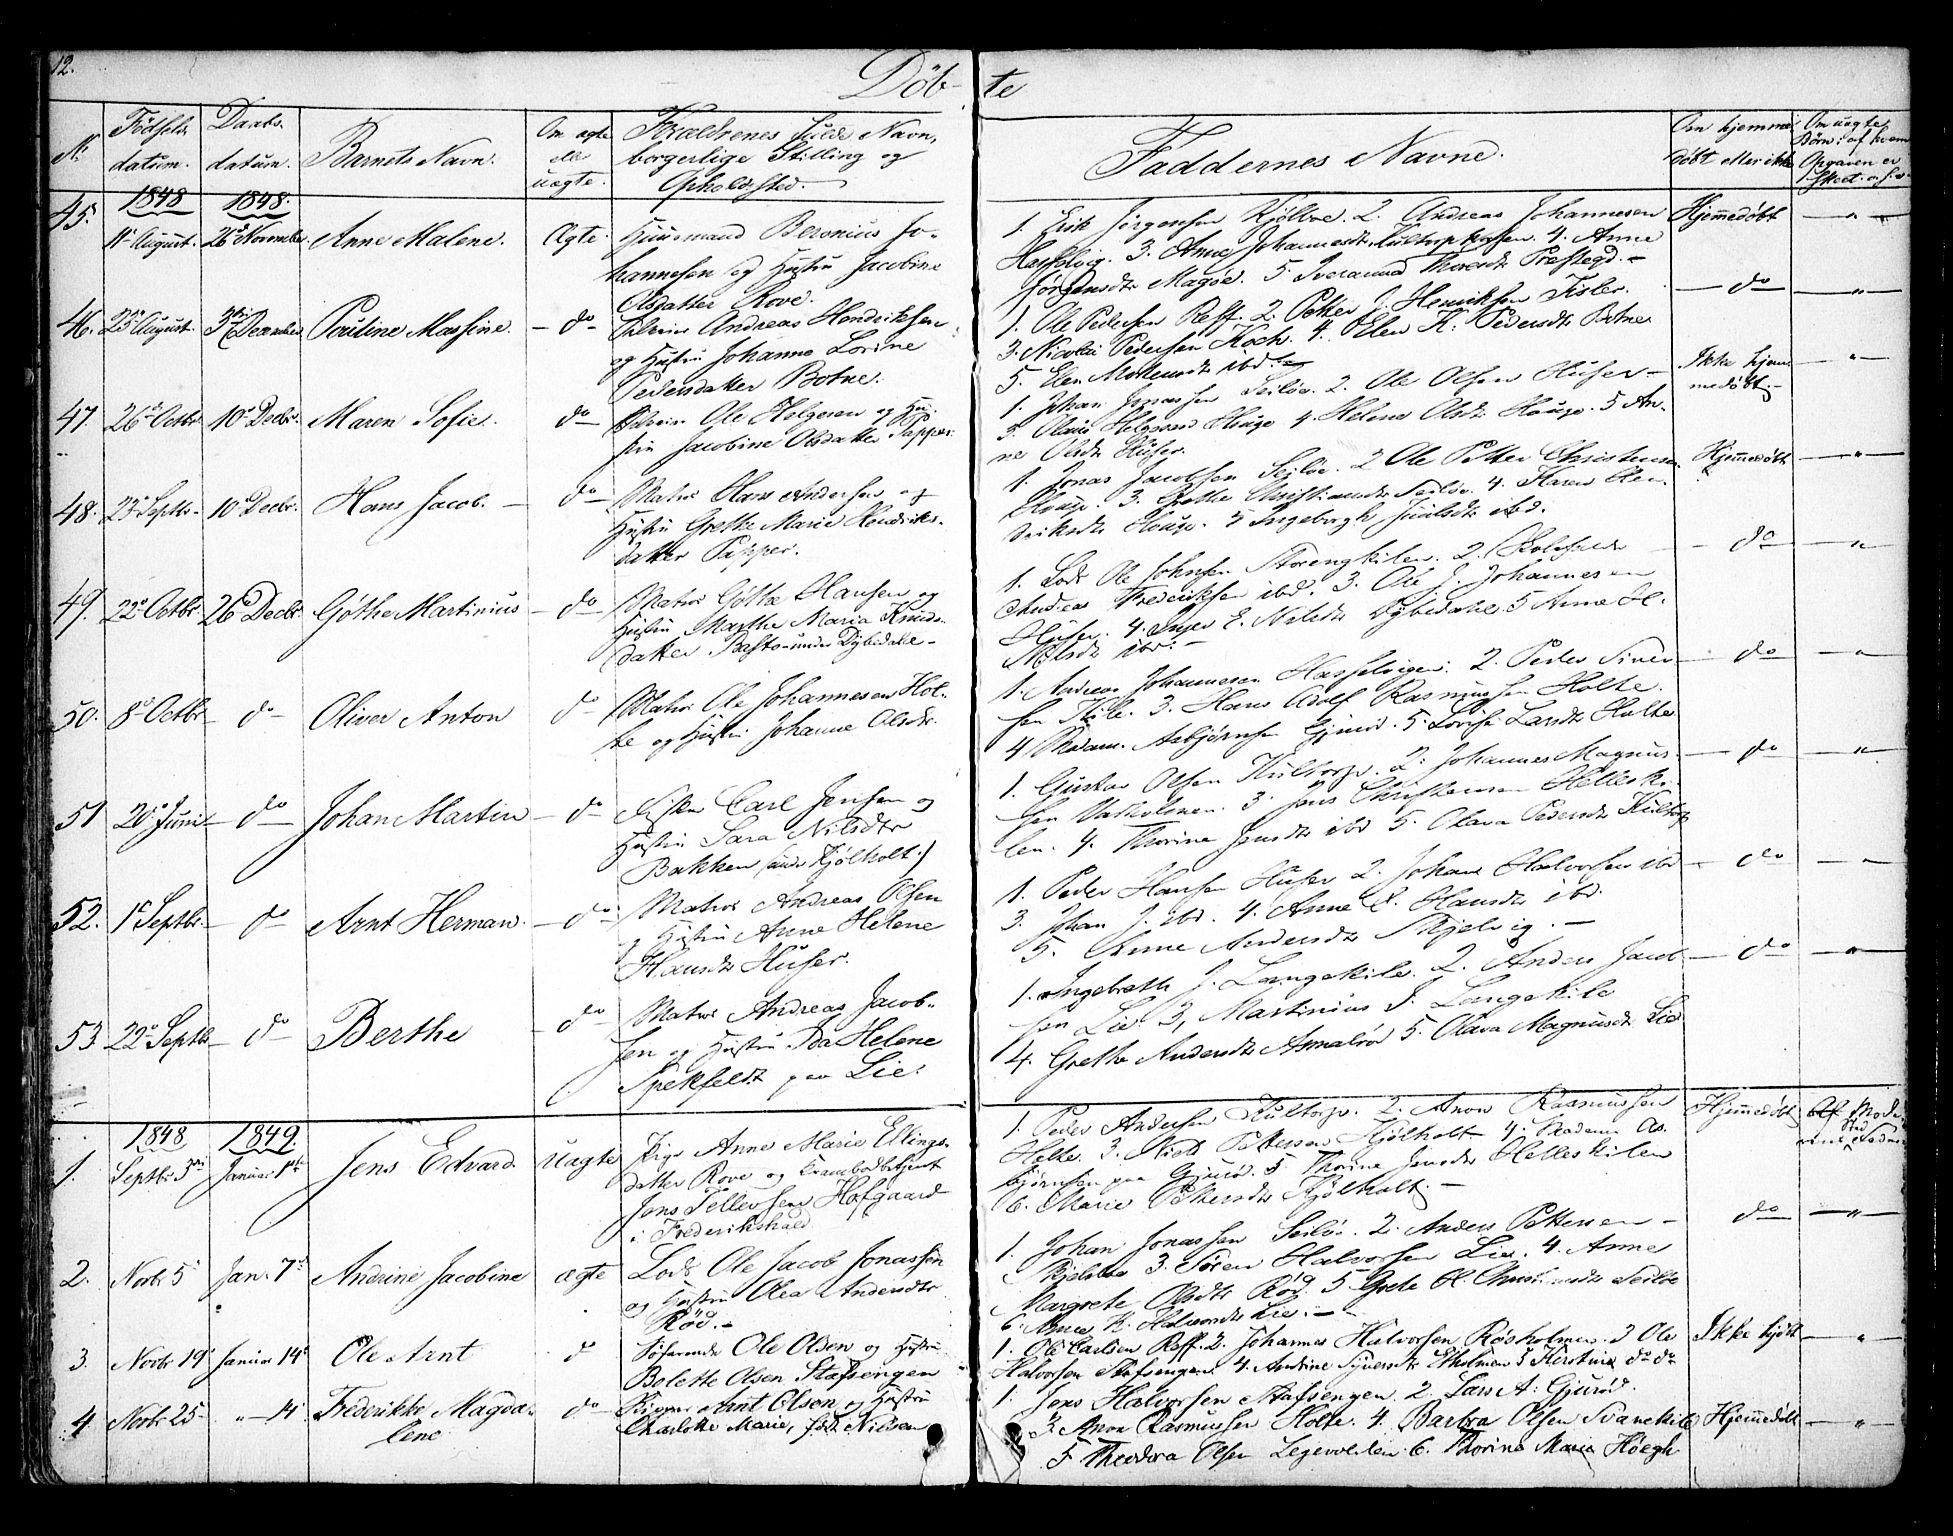 12.
Döb- te
N. Fødsels datum. Daabs datum. Barnets Navn. Om ægte eller uægte. Forældrenes fulde Navn, borgerlige Stilling og Opholdssted. Faddernes Navne. Om hjemmedøbt eller ikke Om uægte Børn: af hvem Opgaven er skeet
1848 1848.
45. 11 August. 26 November Anne Malene. Ægte. Huusmand Beronius Jo-
hannesen og Hustru Jacobine
Olsdatter Rove.
1. Erik Jörgensen Kjölboe. 2. Andreas Johannesen
Hasselvig. 3. Anne Johannesdtr 4. Anne
Jörgensdtr Magöe. 5. Thoresdtr Prestegd. -
Hjemmedöbt - " -
46. 23 August 3 December Pauline Massine. - do - Andreas Hendriksen
og Hustru Johanne Lorine
Pedersdatter Botne.
1. Ole Pedersen Reff. 2. Petter J. Henriksen Fisler.
3. Nicolai Pedersen Koch. 4. Elen K. Pedersdtr Botne
5. Elen ibd. -
- do - - " -
47. 26 Octbr 10 Decbr. Maren Sofie. do - Ole Helgesen og Hu-
stru Jacobine Olsdatter Papper.
1. Johan Jonassen Seilöe. 2. Ole Olsen Huser -
3. Olaus Helgesen Houge 4. Helene Olsdtr Houge. 5 An-
ne Olsdtr Huser.
Ikke hjem-
medöbt. - - " -
48. 23 Septbr - 10 Decbr. Hans Jacob. - do - Matros Hans Andersen og
Hustru Grethe Marie Hendriks-
datter Papper.
1. Jonas Jacobsen Seilöe. 2 Ole Petter Christensen
Houge. 3. Grethe Christiansdtr Seilöe. 4. Karen Hen-
driksdtr Houge. 5 Ingeborgh Juulsdtr ibd.
Hjemmedöbt - " -
49. 22 Octbr. 26 Decbr. Göthe Martinius - do - Matros Götte Hansen og
Hustru Marthe Maria Knuds-
datter Basto - under Dybedahl -
1. Lods Ole Johnsen Storengkilen. 2. Skoleholder
Andreas Frederiksen ibd. 3. Ole J. Johannesen
Huser. 4. Inger E. Nilsdtr Dybedahl 5 Anne H.
Nilsdtr ibd. -
- do - - " -
50. 8 Octbr - do - Oliver Anton do - Matros Ole Johannesen Hol-
te og Hustru Johanne Olsdtr.
1. Andreas Johannesen Hasselvigen. 2. Peder Siver-
sen Kile. 3. Hans Adolf Rasmussen Holte.
4 Madam. Asbjørnsen Gjurød. 5. Lovise Larsdtr Holte
- do - - " -
51 20 Juni - do - Johan Martin - do - Carl Jensen og
Hustru Sara Nilsdtr
Bakken (under Kjölholt.)
1. Gustav Olsen Kultorp. 2. Johannes Magnus-
sen Vasholmen. 3. Jens Christensen Helleski-
len. 4. Thorine Jensdtr ibd 5. Olava Pedersdtr Kultorp
- do - - " -
52. 1 Septbr. - do - Arnt Herman. - do - Matros Andreas Olsen
og Hustru Anne Helene
Hansdtr Huser.
1. Peder Hansen Huser 2. Johans Halvorsen ibd
3. Johan J. ibd. 4. Anne E. Hansdtr ibd.
5. Anne Andersdtr Skjelvig. -
- do - - " -
53. 22 Septbr - do - Berthe - do - Matros Andreas Jacob-
sen og Hustru Ida Helene
Spekfeldt paa Lie.
1. Ingebreth J. Langekile. 2. Anders Jacob-
sen Lie. 3, Martinius J. Langekile
4. Grethe Andersdtr 5. Olava Magnusdtr Lie
- do - - " -
1848 1849.
1. Septbr 3 Januar 1 Jens Edvard. uægte Pige Anne Marie Ellings-
datter Rove og Krambodbetjent
Jens Tellefsen Hofgaard
i Frederikshald
1. Peder Andersen Kultorp. 2. Anon Rasmussen
Holte. 3. Niels Pettersen Kjölholt 4. Madame As-
bjørnsen paa Gjurød. 5. Thorine Jensdtr Helleskilen
6. Marie Pettersdtr Kjölholt. -
Hjemmedöbt Af Mode-
ren
2. Novbr 5 Jan. 7 Andrine Jacobine ægte Lods Ole Jacob Jonassen
og Hustru Olea Andersdtr
Röd. -
1. Johan Jonassen Seilöe. 2. Anders Pettersen -
3. Sören Halvorsen Lie. 4. Anne
Margrete Olsdtr Röd. 5 Grete H. Seilöe
6. Anne K. Halvorsdtr Lie. -
do - " -
3. Novbr 19 Januar 14 Ole Arnt d Söfarende Ole Olsen og Hustru
Bolette Olsen Stafsengen
1. Ole Carlsen Reff. 2. Johannes Halvorsen Rösholmen. 3 Ole
Halvorsen Stafsengen. 4. Andrine Syversdtr Etholmen 5 Kirstine do do
Ikke hjdöt - " -
4 Novbr 25 - " - 14 Frederikke Magda-
lene do - Arnt Olsen og Hustru
Charlotte Marie, født Nielsen
1. Jens Halvorsen Stafsengen. 2. Lars A. Gjuröd.
3. Anon Rasmussen Holte. 4. Barbra Olsen Svanekil
5 Theodora Olsen 6. Thorine Marie Höegh
Hjemmedöbt - " -